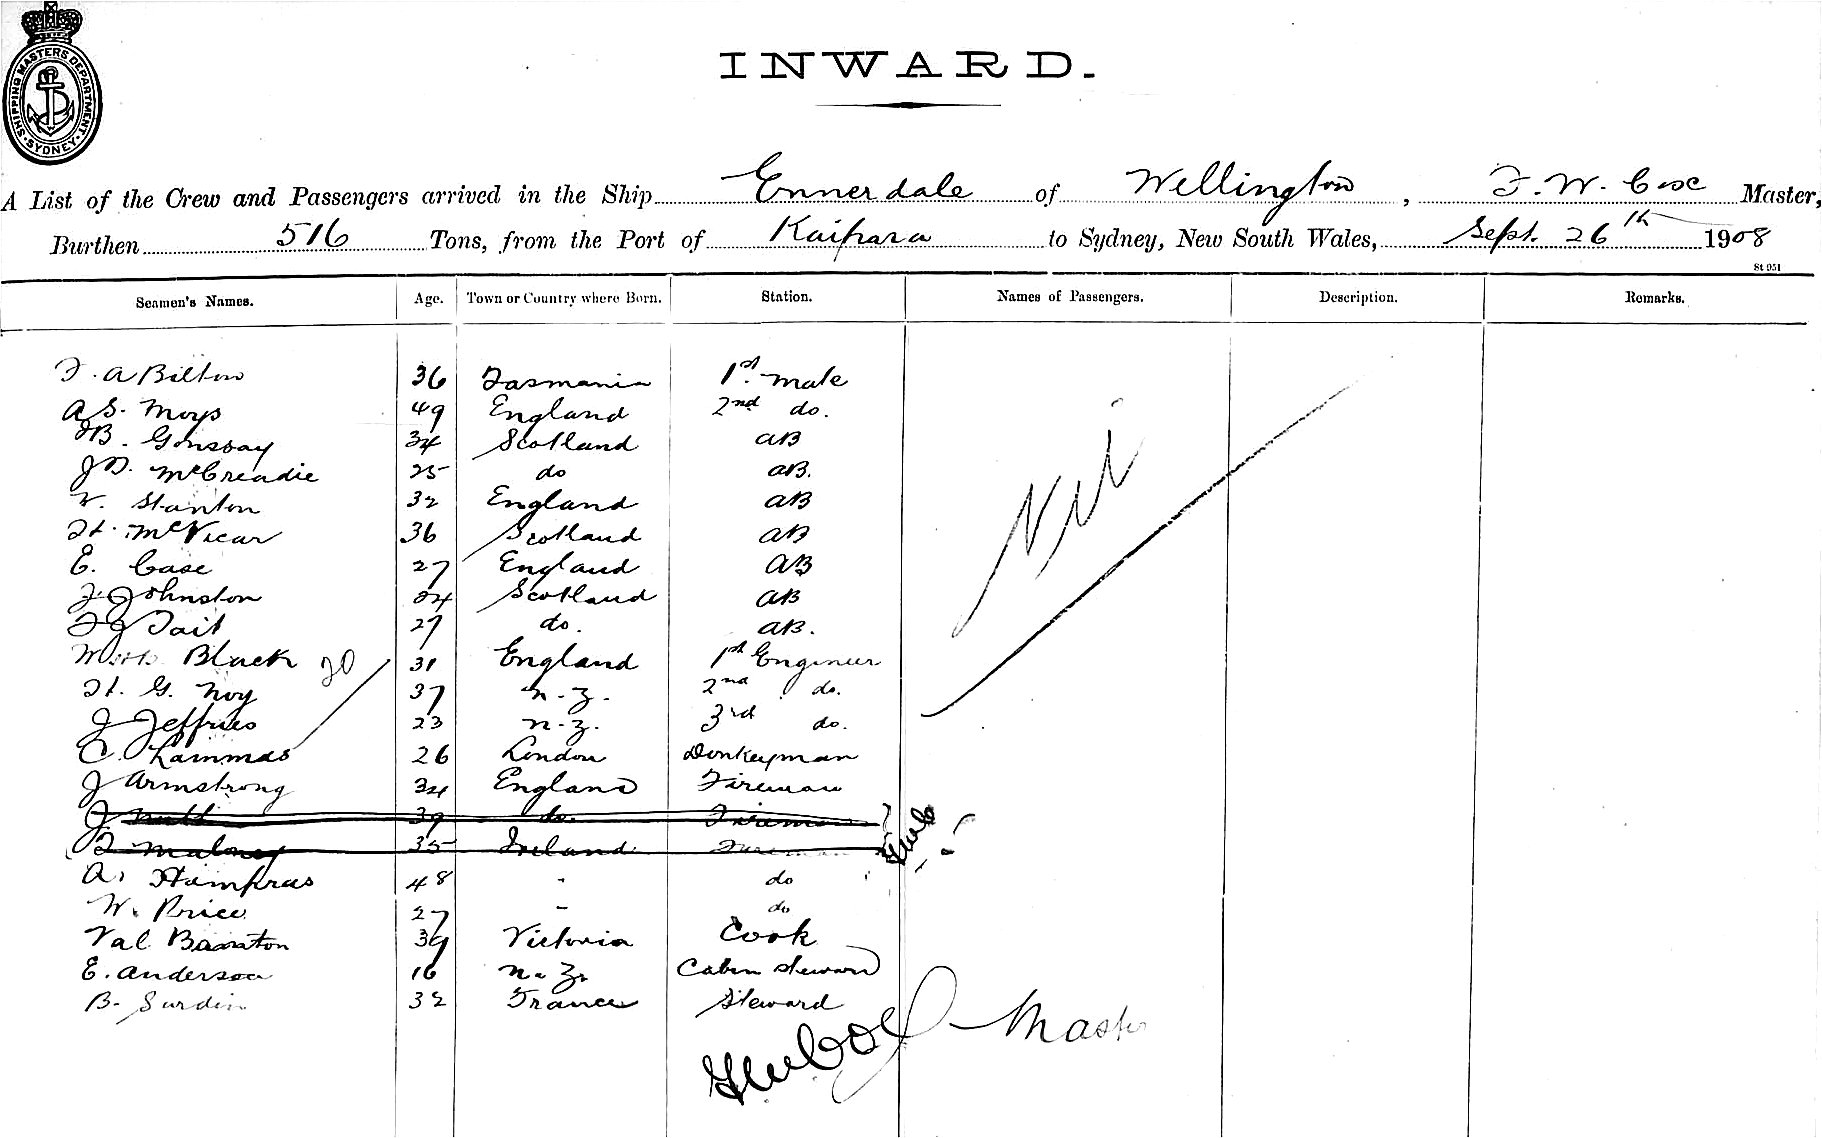 SHIPPING MASTERS DEPARTMENT. SYDNEY.
INWARD.
A List of the Crew and Passengers arrived in the Ship Ennerdale of Wellington, F. W. Cox Master,
Burthen 516 Tons, from the Port of Kaipara to Sydney, New South Wales, Sept. 26th 1908
St 951
Seamen's Names. Age. Town or Country where Born. Station. Names of Passengers. Description. Remarks.
F. A Bilton 36 Tasmania 1st mate
A S. Moys 49 England 2nd do.
34 Scotland AB
J D. McCreadie 25 do AB.
Stanton 32 England AB
McVicar 36 Scotland AB
E. Case 27 England AB
Johnston 24 Scotland AB
Tait 27 do. AB.
Black 20 31 England 1st Engineer
H. G. Noy 37 N.Z. 2nd do.
J Jeffries 23 N.Z. 3rd do.
C. Lammas 26 London Donkeyman
J Armstrong 34 England Fireman
J 39 do. Fireman
Maloney 35 Ireland Fireman
A. 48 - do
W. Price 27 - do
Val Barrton 39 Victoria Cook
E. Anderson 16 N.Z. Cabin steward
B. Surdin 32 France Steward
Nil
Master